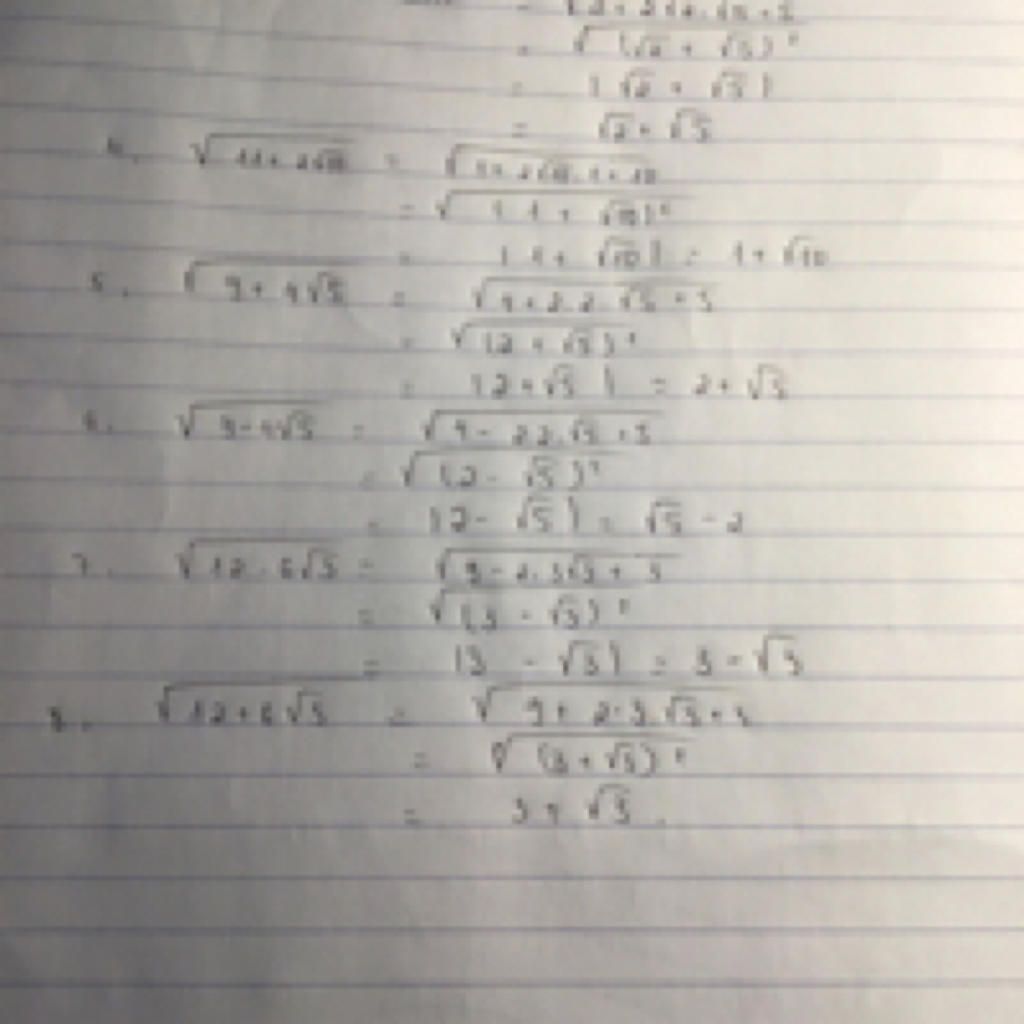 = √(√2 + √5)²
= |√2 + √5|
= √2 + √5
4. √11+2√10 = √1+2√10.1+10
= √(1+√10)²
= |1+√10| = 1+√10
5. √9+4√5 = √4+2.2.√5+5
= √(2+√5)²
= |2+√5| = 2+√5
6. √9-4√5 = √4-2.2.√5+5
= √(2-√5)²
= |2-√5| = √5-2
7. √12-6√3 = √9-2.3√3+3
= √(3-√3)²
= |3-√3| = 3-√3
8. √12+6√3 = √9+2.3.√3+3
= √(3+√3)²
= 3+√3.